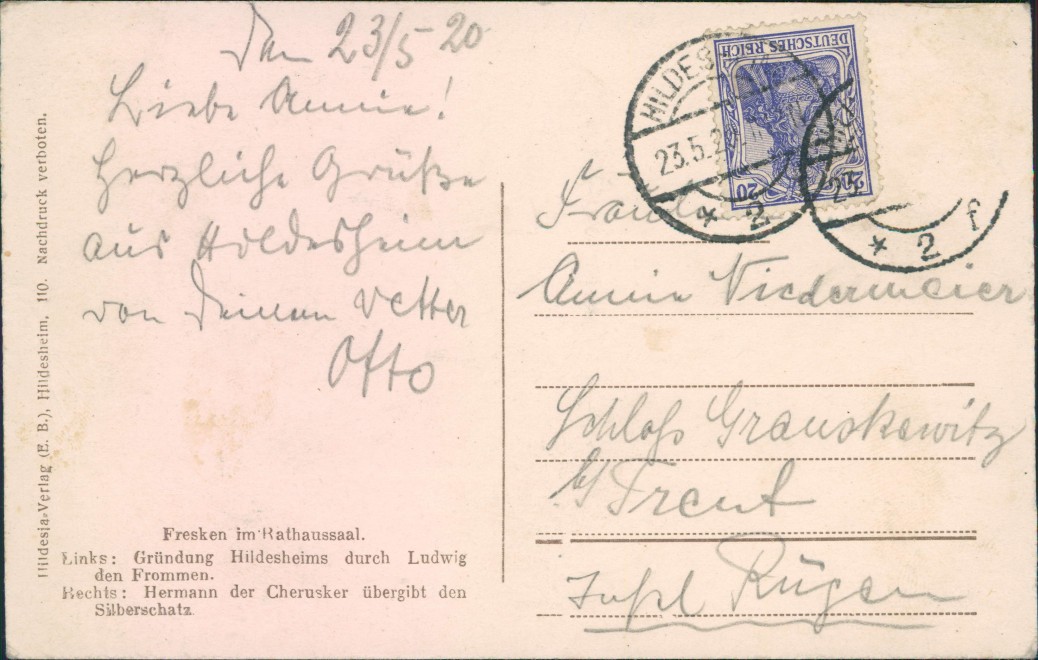 Den 23/5 20
Liebe Annie!
Herzliche Grüße
aus Hildesheim
von Deinem Vetter
Otto
Fresken im Rathaussaal.
Links: Gründung Hildesheims durch Ludwig
den Frommen.
Rechts: Hermann der Cherusker übergibt den
Silberschatz
Hildesia-Verlag (E. B.), Hildesheim. 110. Nachdruck verboten.
DEUTSCHES REICH
20 20
23.5.20
* 2
* 2 f
Annie Niedermeier
Schloß Granskewitz
b/ Trent
Insel Rügen